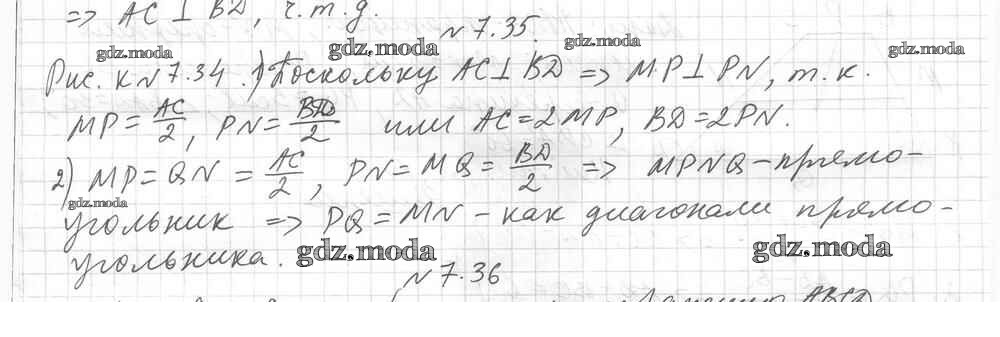 => AC ⊥ BD, ч.т.д.
№ 7.35.
gdz.moda gdz.moda gdz.moda gdz.moda
Рис. к №7.34. 1) Поскольку AC⊥BD => MP⊥PN, т.к.
MP = AC/2, PN = BD/2 или AC=2MP, BD=2PN.
2) MP = QN = AC/2, PN = MQ = BD/2 => MPNQ – прямо-
gdz.moda
угольник => PQ = MN – как диагонали прямо-
угольника. gdz.moda gdz.moda
№ 7.36
ABCD